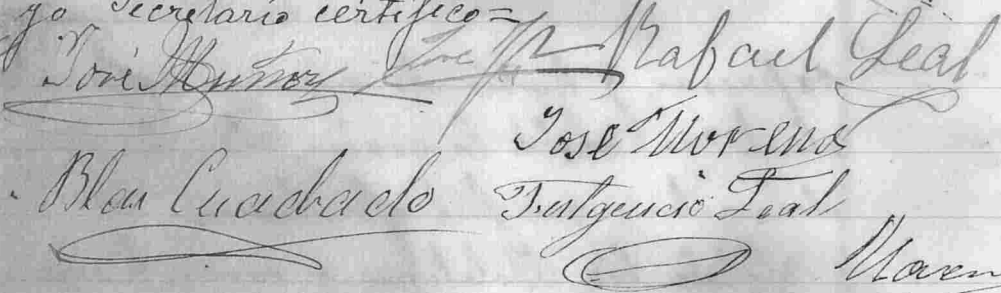 yo Secretario certifico=
José Muñoz José Rafael Leal
José Moreno
Blas Cuadrado Fulgencio Leal